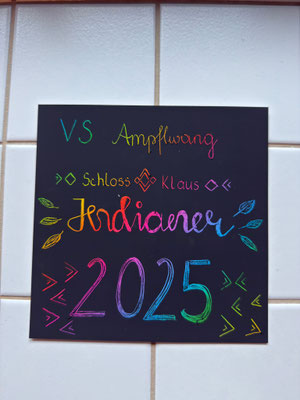 VS Ampflwang
Schloss Klaus
Indianer
2025